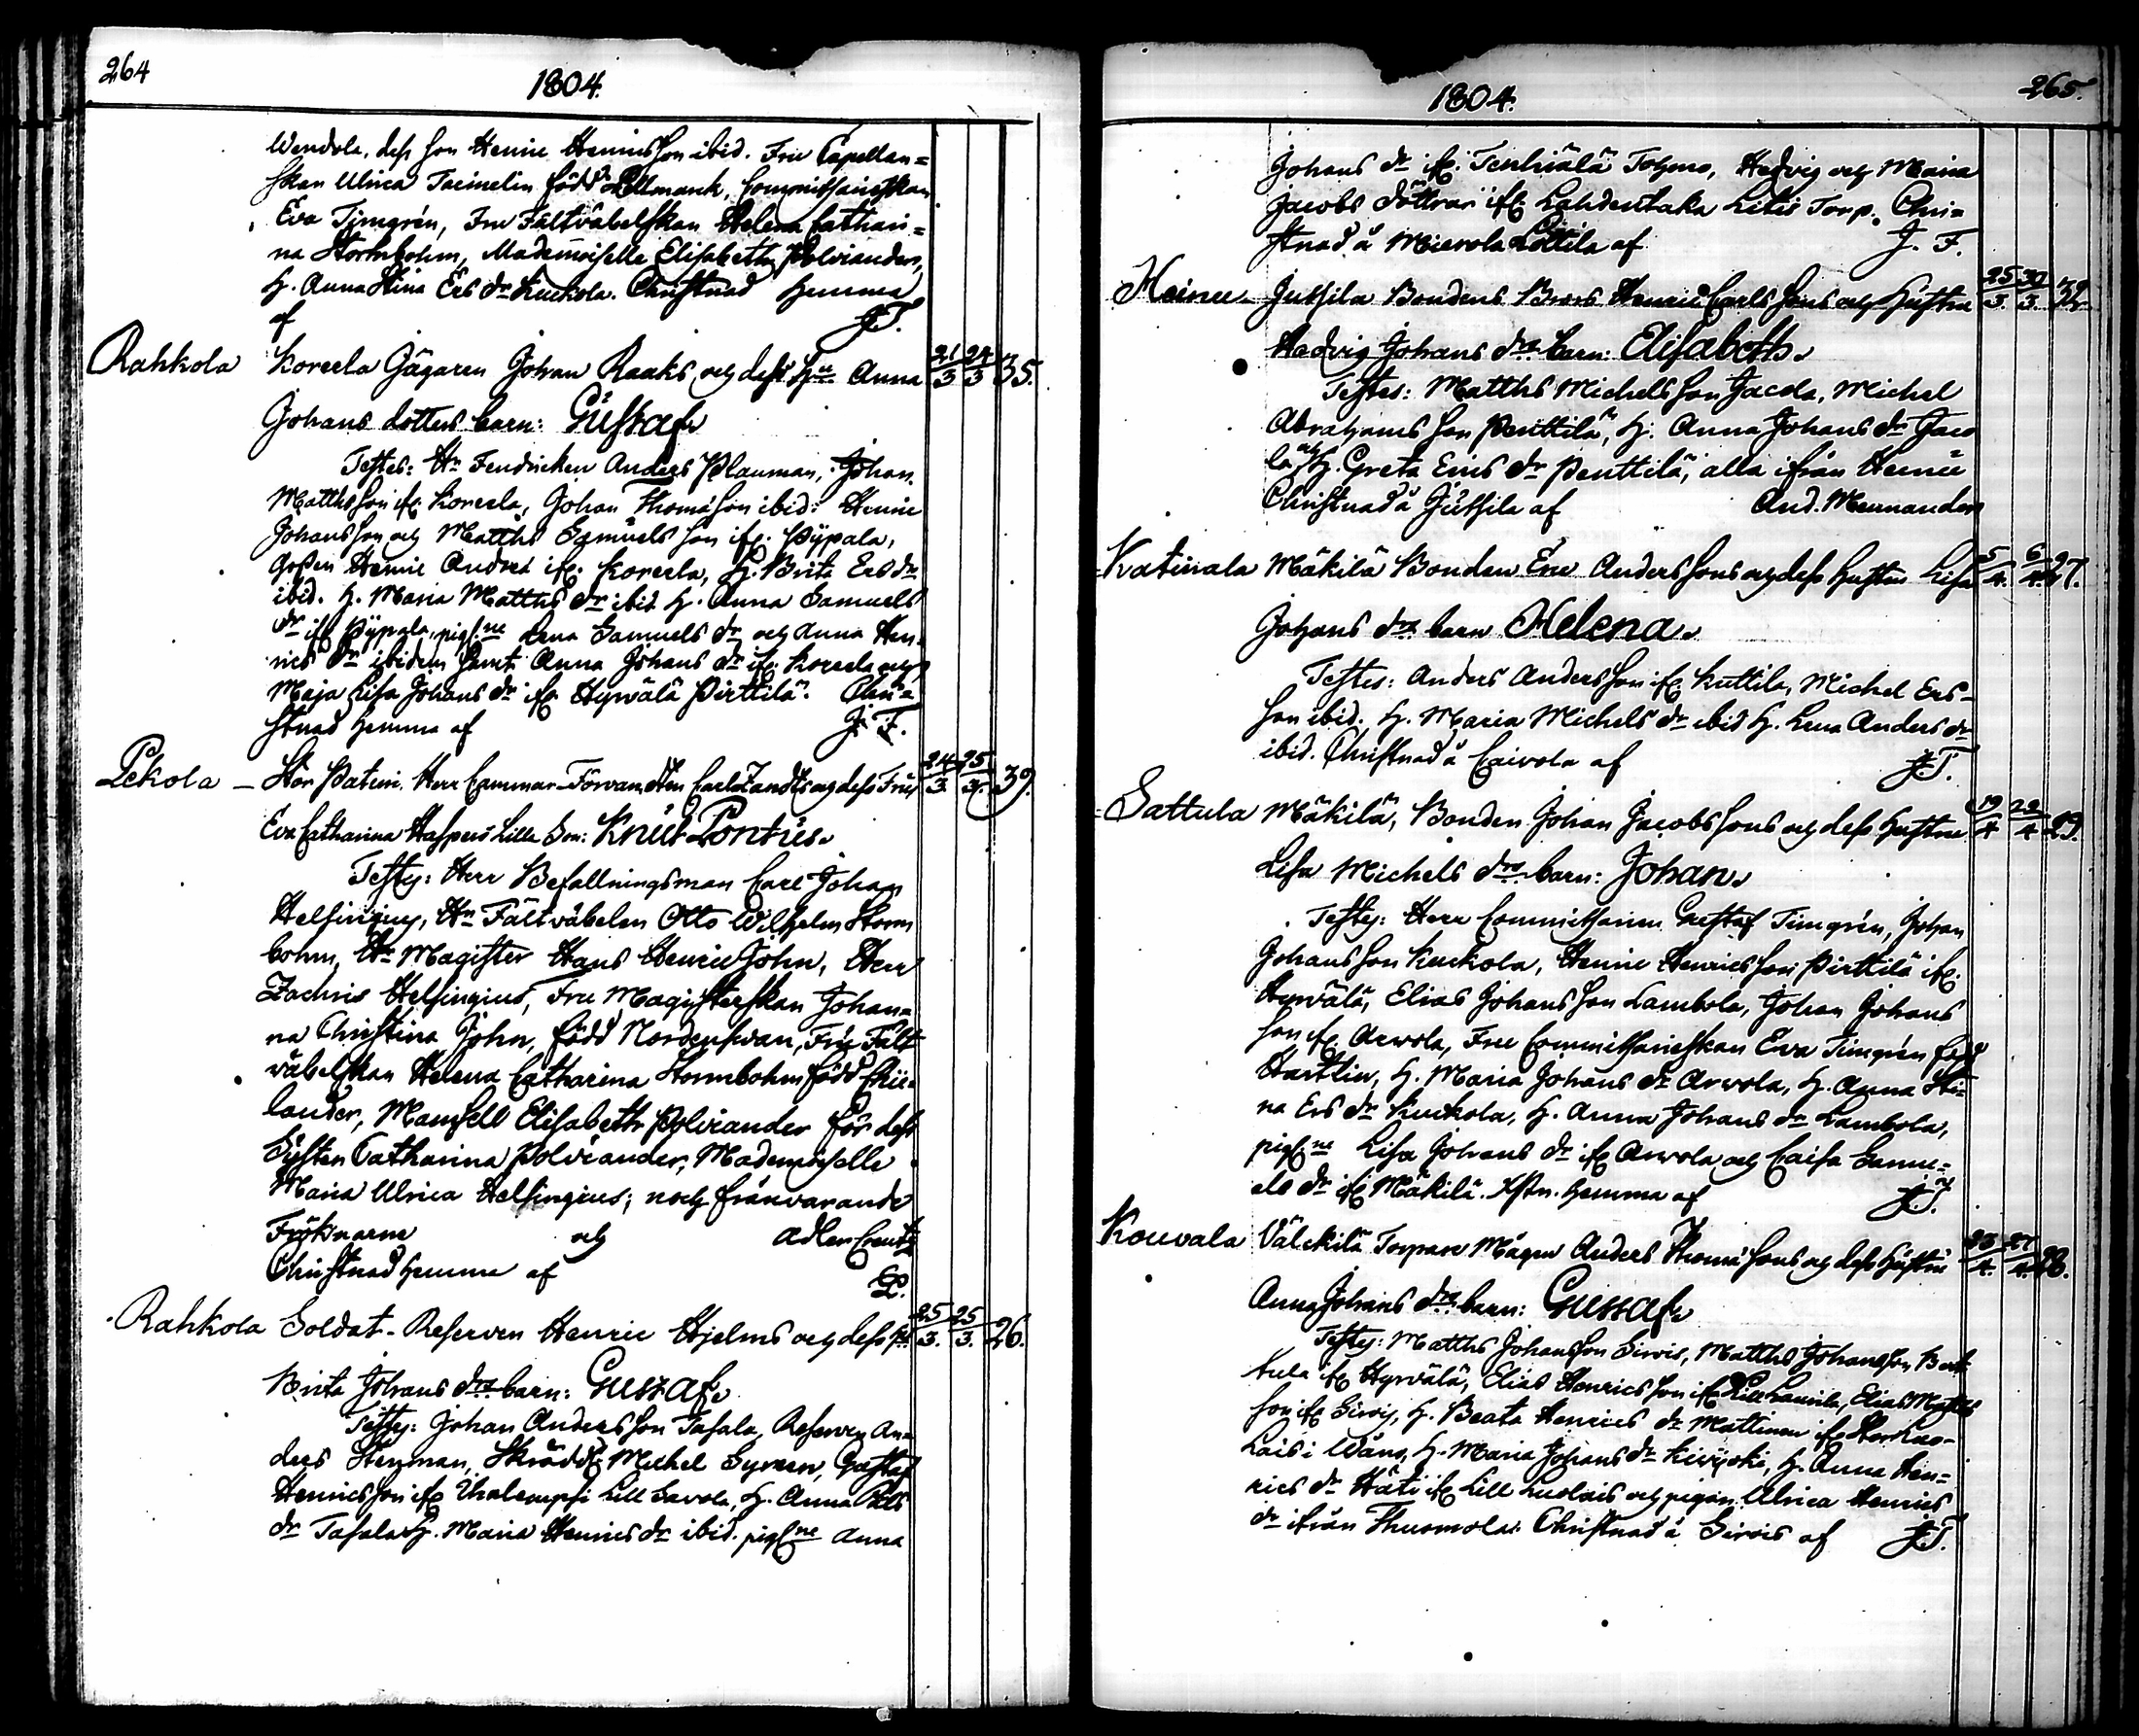 264
1804.
Wendola, dess son Henric Henricsson ibid. Fru Capellan=
skan Ulrica Tacinelin född Pollmanck, Commissarieskan
Eva Timgrén, Fru Fältväbelskan Helena Cathari=
na Stormbohm, Mademoiselle Elisabeth Polviander,
H. Anna Stina Ers dr Kuckola. Christnad hemma
af J.F.
Rahkola Koreela Jägaren Johan Raaks och dess Hu Anna 21/3 24/3 35.
Johans dotters barn: Gustaf.
Testes: Hr Fendricken Anders Plauman, Johan
Matthsson ifr. Koreela, Johan Thomasson ibid. Henric
Johansson och Matths Samuelsson ifr. Pÿpala,
Gossen Henric Anders ifr. Koreela, H. Brita Ers dr
ibid. H. Maria Matths dr ibid. H. Anna Samuels
dr ifr Pÿpala, pig.ne Lena Samuels dr och Anna Hen=
rics dr ibidem samt Anna Johans dr ifr. Koreela och
Maja Lisa Johans dr ifr Hyrvälä Pirttilä. Chri=
stnad hemma af J. F.
Lekola – Stor Paturi. Herr Cammar-Förvandten Carl Zandts och dess Frus 24/3 25/3 39.
Eva Catharina Haspers Lilla Son: Knut Pontus.
Testes: Herr Befallningsman Carl Johan
Helsingius, Hr Fältväbelen Otto Wilhelm Storm
bohm, Hr Magister Hans Henric John, Herr
Zachris Helsingius, Fru Magisterskan Johan=
na Christina John, född Nordenswan, Fru Fält
väbelskan Helena Catharina Stormbohm född Chii=
lander, Mamsell Elisabeth Polviander för dess
Syster Catharina Polviander, Mademoiselle
Maria Ulrica Helsingius; och frånvarande
Fröknarne och Adler Creutz
Christnad hemma af
Rahkola Soldat-Reserven Henric Hjelms och dess Hu 25/3. 25/3. 26.
Brita Johans drs barn: Gustaf.
Testes: Johan Andersson Tafala, Reserven An=
ders Stenman, Skrädd. Michel Syreen, Gustaf
Henricsson ifr Uhaleampi Lill Savola, H. Anna
dr Tafala H. Maria Henrics dr ibid. pig.ne Anna
1804.
265.
Johans dr ifr. Tenhiälä Tohmo, Hedvig och Maria
Jacobs döttrar ifr. Lahdentaka Litis Torp. Chri=
stnad å Mierola Lottila af J. F.
Heinu – Jutila Bondens Brors Henric Carls sons och hustru 25/3. 30/3. 32.
Hedvig Johans drs barn: Elisabeth.
Testes: Matths Michelsson Jacola, Michel
Abrahamsson Penttilä, H. Anna Johans dr Jaco
la och H. Greta Erics dr Penttilä, alla ifrån Heinu
Christnad å Jutila af And. Mennander
Katinala Mäkilä Bonden Eric Anderssons och dess hustru Lisa 5/4. 6/4. 27.
Johans drs barn Helena.
Testes: Anders Andersson ifr Kuttila, Michel Ers=
son ibid. H. Maria Michels dr ibid H. Lena Anders dr
ibid. Christnad å Caivola af J.F.
Sattula Mäkilä, Bonden Johan Jacobssons och dess hustru 19/4 22/4 29.
Lisa Michels drs barn: Johan.
Testes: Herr Commissarien Gustaf Timgrén, Johan
Johansson Kuckola, Henric Henricsson Pirttilä ifr.
Hyrvälä, Elias Johansson Lambola, Johan Johans
son ifr. Arvola, Fru Commissarieskan Eva Timgrén född
Hartlin, H. Maria Johans dr Arvola, H. Anna Sti=
na Ers dr Kuckola, H. Anna Johans dr Lambola,
pig.ne Lisa Johans dr ifr Arvola och Caisa Samu=
els dr ifr Mäkilä. Xstn. hemma af J.F.
Kouvala Välckilä Torpare Mågen Anders Thomæ sons och dess hustru 23/4. 27/4. 28.
Anna Johans drs barn: Gustaf.
Testes: Matths Johansson Sirvis, Matths Johansson
tula ifr Hyrvälä, Elias Henricsson ifr Lill Laurila, Elias Matts
son ifr Sirvis, H. Beata Henrics dr Mattinen ifr Stor Luo=
lais i Wånå, H. Maria Johans dr Kivijoki, H. Anna Hen=
rics dr Häti ifr Lill Luolais och pigan Ulrica Henrics
dr ifrån Thuomola. Christnad å Sirvis af J.F.